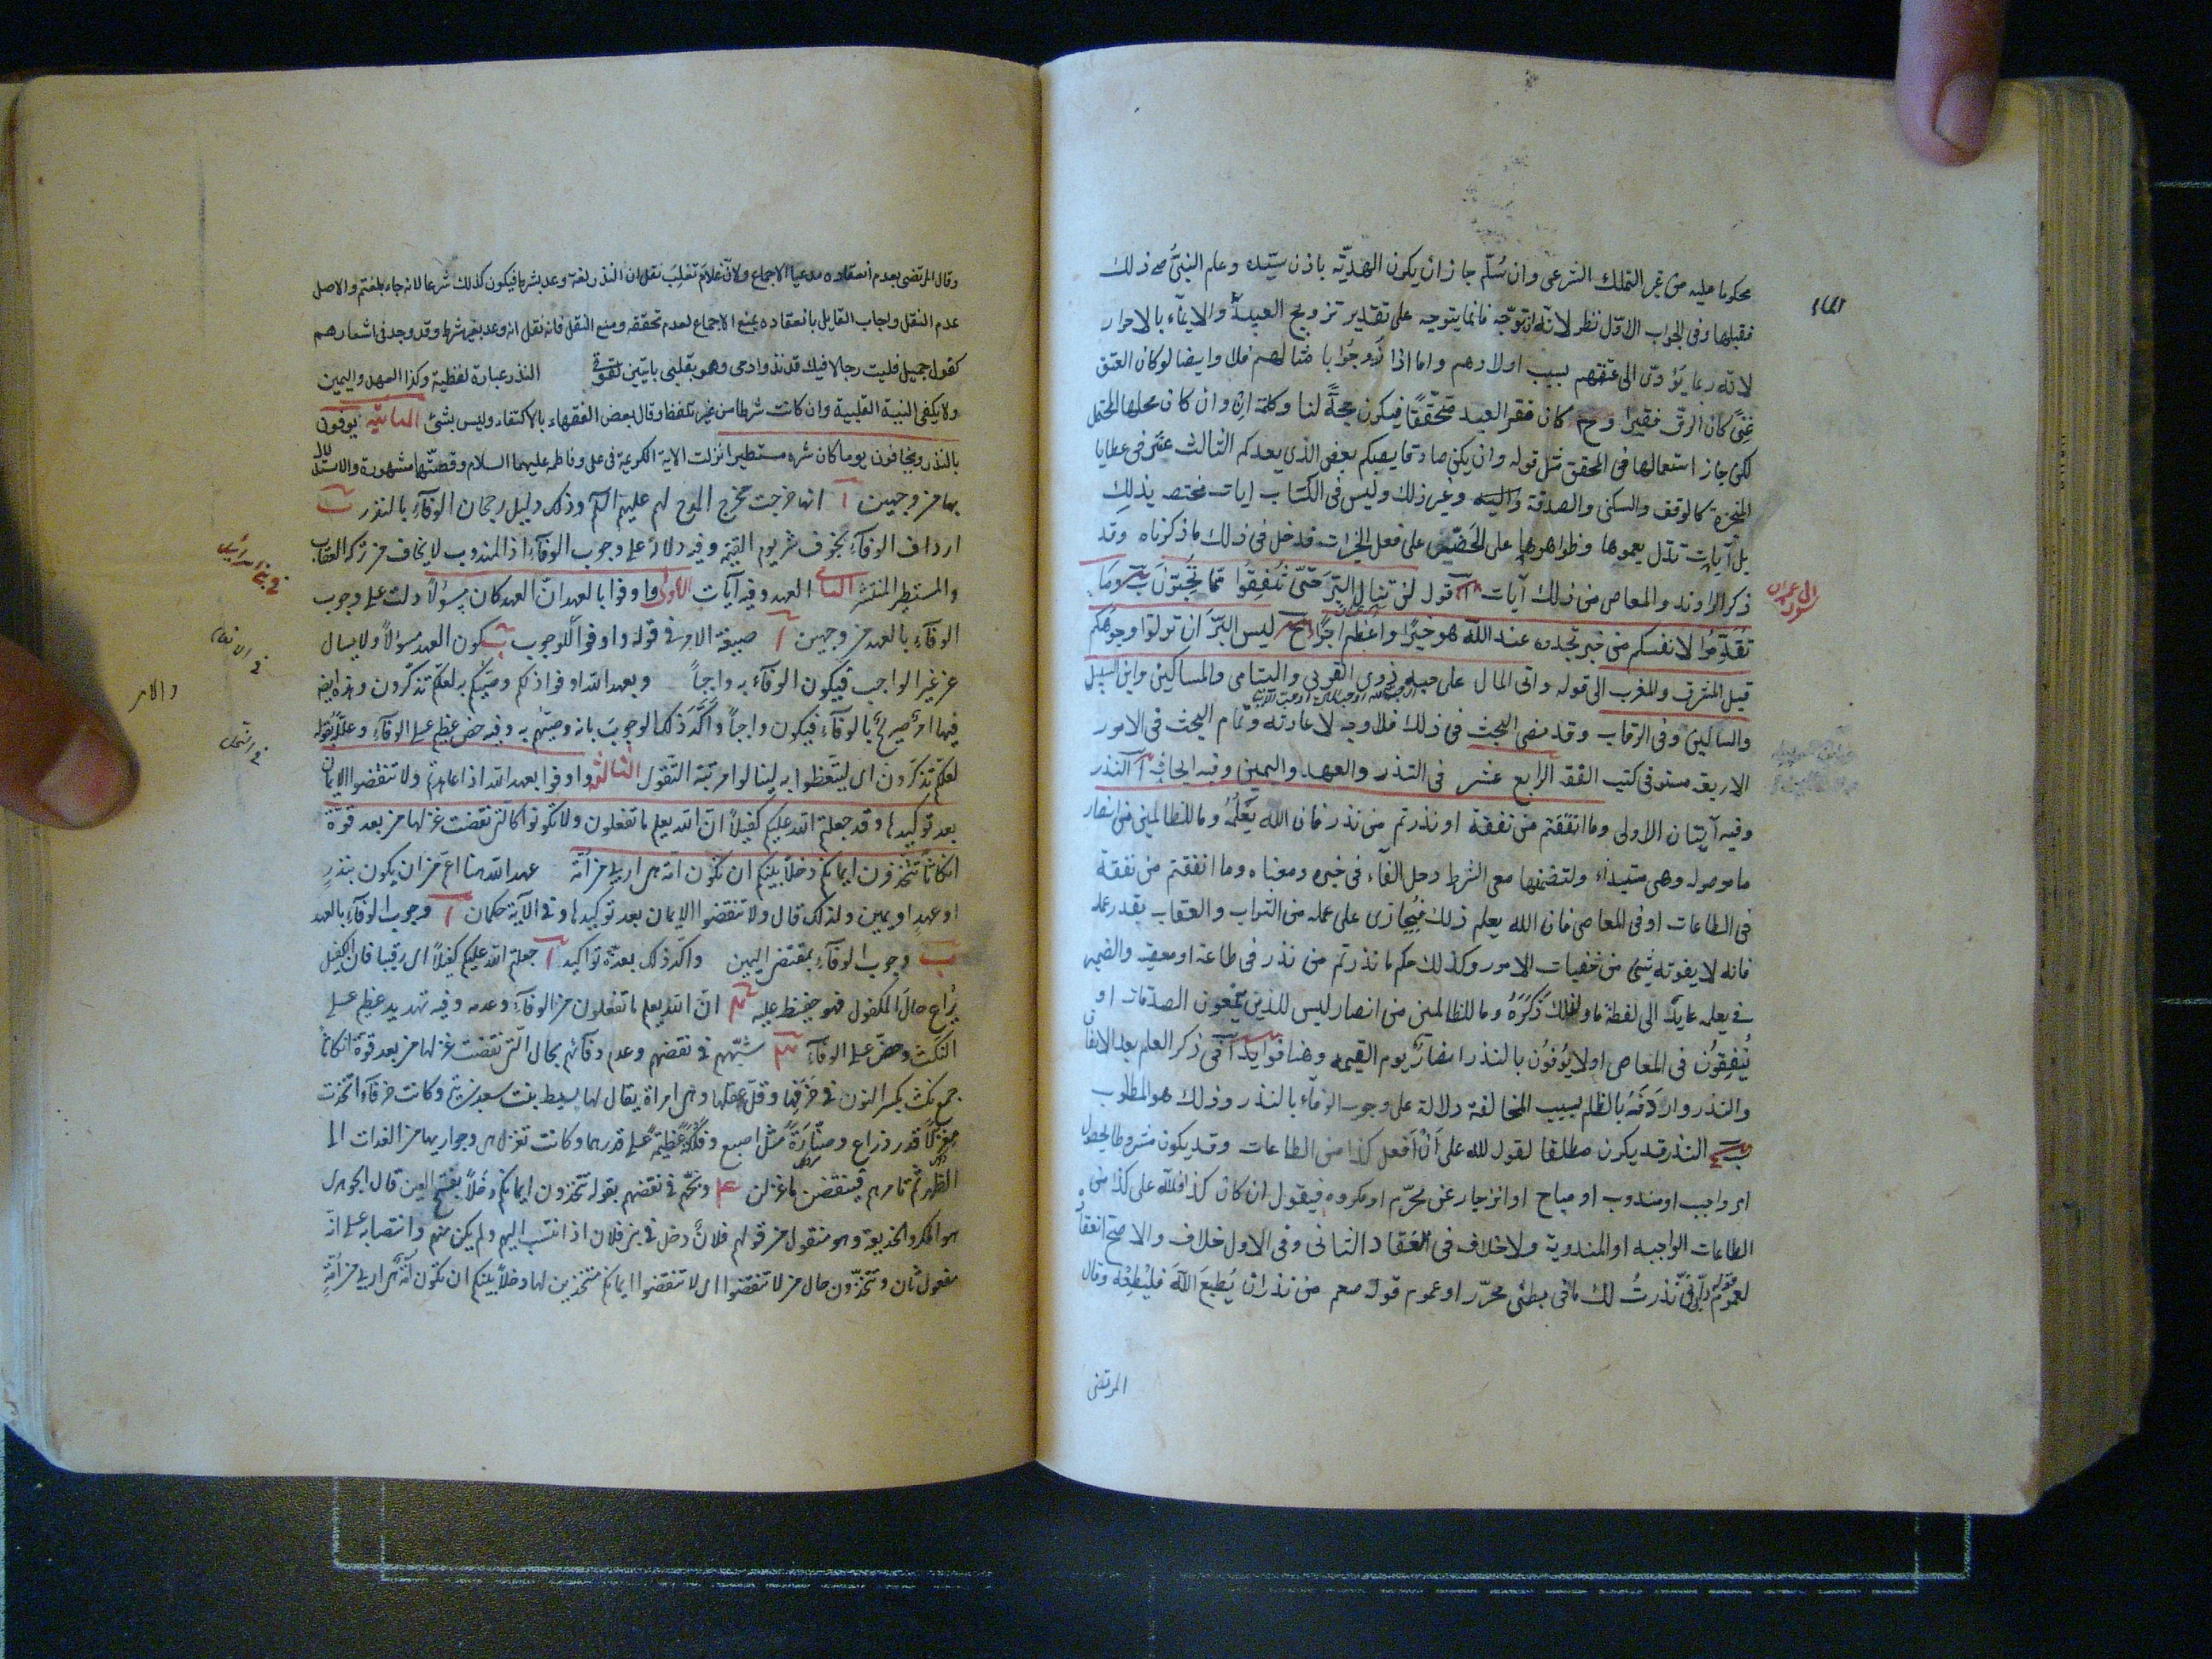 محكوما عليه من غير التملك الشرعى وان سُلّم جاز ان يكون الهديّه باذن سيّده وعلم النبىُّ ص ذلك
فقبلها وفى الجواب الاوّل نظر لانّه ان توجّه فانما يتوجه على تقدير تزويج العبيد والاماء بالاحرار
لانّه ربما يؤدّى الى عتقهم بسبب اولادهم واما اذا زُوجُوا بامثالهم فلا وايضا لوكان العتق
غِنىً كان الرقّ فقيرا وح كان فقر العبد متحقّقًا فيكون حجةً لنا وكلمة اِن وان كان محلها المحتمل
لكن جاز استعمالها فى المحقق مثل قوله وان يكن صادقا يصبكم بعض الذى يعدكم الثالث عشر فى عطايا
المنجزة كالوقف والسكنى والصدقة والهبه وغير ذلك وليس فى الكتاب ايات مختصه بذلك
بل آيات تدل بعمومها وظواهرها على الحَضّ على فعل الخيرات فدخل فى ذلك ما ذكرناه وقد
ذكر الراوندى والمعاصر من ذلك آيات آ قوله لن تنالوا البِرَّ حَتّى تُنفِقُوا مّما تُحِبّونَ ب ومَا
تُقَدِّمُوا لانفسكم من خير تجدوه عند الله هو خيرًا واعظم اجرًا ج ليس البِرَّ اَن تولّوا وجوُهَكم
قِبل المشرق والمغرب الى قوله واتى المال على حبه ذوى القربى واليتامى والمساكين وابن السبيل
والسائلين وفى الرقاب وقد مضى البحث فى ذلك فلا وجه لاعادته وتمام البحث فى الامور
الاربعة مستوفى كتب الفقه الرابع عشر فى النذر والعهد واليمين وفيه ابحاث آ النذر
وفيه آيتان الاولى وما انفقتم من نفقة او نذرتم من نذر فان الله يَعْلمُهُ وما للظالمين من انصار
ما موصوله وهى مبتداء ولتضمنها معنى الشرط دخل الفاء فى خبره ومعناه وما انفقتم من نفقة
فى الطاعات او فى المعاصى فان الله يعلم ذلك فَيُجازى على عمله من الثواب والعقاب بقدر عمله
فانه لا يفوته شئ من خفيات الامور وكذلك حكم ما نذرتم من نذر فى طاعة او معصيه والضمير
فى يعلمه عايدٌ الى لفظة ما ولذلك ذكّرَهُ وما للظالمين من انصار ليس للذين يمنعون الصدقات او
يُنْفِقوُن فى المعاصى او لا يُوْفوُن بالنذر انصارٌ يوم القيمه وهنا فوايد آ فى ذكر العلم بعد الانفاق
والنذر واردَفَهُ بالظلم بسبب المخالفة دلالة على وجوب الوفاء بالنذر وذلك هو المطلوب
ب النذر قد يكون مطلقا لقول لله علىّ اَنْ اَفعل كذا من الطاعات وقد يكون مشروطا بحصول
امر واجب او مندوب او مباح او انزجار عن محرّم او مكروه فيقول ان كان كذا فَلِلّه على كذا من
الطاعات الواجبه او المندوبة ولا خلاف فى انعقاد الثانى وفى الاول خلاف والاصح انعقاده
لعموم قوله ربّ انّى نَذرتُ لك ما فى بطنى محرّر او عموم قوله صعم من نذر ان يُطيعَ اللّهَ فليُطِعْهُ وقال
المرتضى
ال عمران
وقال المرتضى بعدم انعقاده مدعيا الاجماع ولانّ غلامَ ثعلبَ نقل ان النذر لغة وعد بشرط فيكون كذلك شرعا لانه جاء بلغتهم والاصل
عدم النقل واجاب القايل بانعقاده بمنع الاجماع لعدم تحققه ومنع النقل فانه نقل انه وعد بغير شرط وقد وجد فى اشعارهم
كقول جميل فليت رجالا فيك قد نذروا دمى وهموا بقتلى يا بثين لقونى النذر عبارة لفظية وكذا العهد واليمين
ولا يكفى النية القلبية وان كانت شرطا من غير تلفظ وقال بعض الفقهاء بالاكتفاء وليس بشئ الثانيّة يوفون
بالنذر ويخافون يوما كان شره مستطيرا نزلت الاية الكريمة فى على وفاطمه عليهما السلام وقصتها مشهورة والاستدلال
بها من وجهين آ انها خرجت مخرج المدح لهم عليهم السلم وذلك دليل رجحان الوفآءِ بالنذر ب
ارداف الوفآءِ بخوف شر يوم القيمة وفيه دلالة على وجوب الوفآء اذ المندوب لا يخاف من تركه العقاب
والمستطير المنتشر الثانى العهد وفيه آيات الاولى واوفوا بالعهد انّ العهد كان مسؤلاً دلت على وجوب
الوفآءِ بالعهد من وجهين آ صيغة الامر فى قوله واوفوا للوجوب ب كون العهد مسؤلاً ولا يسال
عن غير الواجب فيكون الوفآءُ به واجباً وبعهد الله اوفوا ذلكم وصّيكم به لعلكم تذكّرون وهذه ايضه
فيها امرٌ صريحٌ بالوفآءِ فيكون واجباً واكّد ذلك الوجوبَ بانه وصيّهُم به وفيه حض عظيم على الوفآءِ وعلّله بقوله
لعلكم تذكّرون اى ليتّعظوا به لينالوا مرتبة التقوى الثالثة واوفوا بعهد الله اذا عاهدتم ولا تنقضوا الايمان
بعد توكيدها وقد جعلتم الله عليكم كفيلاً انّ الله يعلم ما تفعلون ولا تكونوا كالتى نقضت غزلها من بعد قوة
انكاثاً تتّخذون ايمانكم دخلاً بينكم ان تكون امّة هى اربى من امّة عهد الله هنا اعم من ان يكون بنذرٍ
او عهدٍ او يمين ولذلك قال ولا تنقضوا الايمان بعد توكيدها وفى الآية حكمان آ وجوب الوفآءِ بالعهد
ب وجوب الوفآءِ بمقتضى اليمين واكّد ذلك بعدّة تواكيد آ جعلتم الله عليكم كفيلاً اى رقيبا فان الكفيل
يُراعى حالَ المكفول فهو حفيظ عليه ب انّ الله يعلم ما تفعلون من الوفآءِ وعدمه وفيه تهديد عظيم على
النكث وحضّ على الوفآءِ ج شبّههم فى نقضهم وعدم وفائهم بحال الّتى نقضت غزلها من بعد قوةٍ انكاثاً
جمع نكث بكسر النون فى خرقها وقلّة عقلها وهى امراة يقال لها ريطه بنت سعد بن تيم وكانت خرقآءَ اتخذت
مغزلاً قدر ذراع وصنّارةً مثل اصبع وفلكةً عظيمةً على قدرها وكانت تغزل هى وجواريها من الغداة الى
الظهر ثم تامرهن فينقضن ما غزلن د وبّخهم فى نقضهم بقوله تتخذون ايمانكم دخلاً بفتح العين قال الجوهرى
هو المكر والخديعة وهو منقول من قولهم فلانٌ دخل فى بنى فلان اذا انتسب اليهم ولم يكن منهم وانتصابه على انّه
مفعول ثان وتتخذون حال من لا تنقضوا اى لا تنقضوا ايمانكم متخذين لها دخلاً بينكم ان تكون امّة هى اربى من امّةٍ
فى بنى اسرائيل
فى الانعام
فى النحل